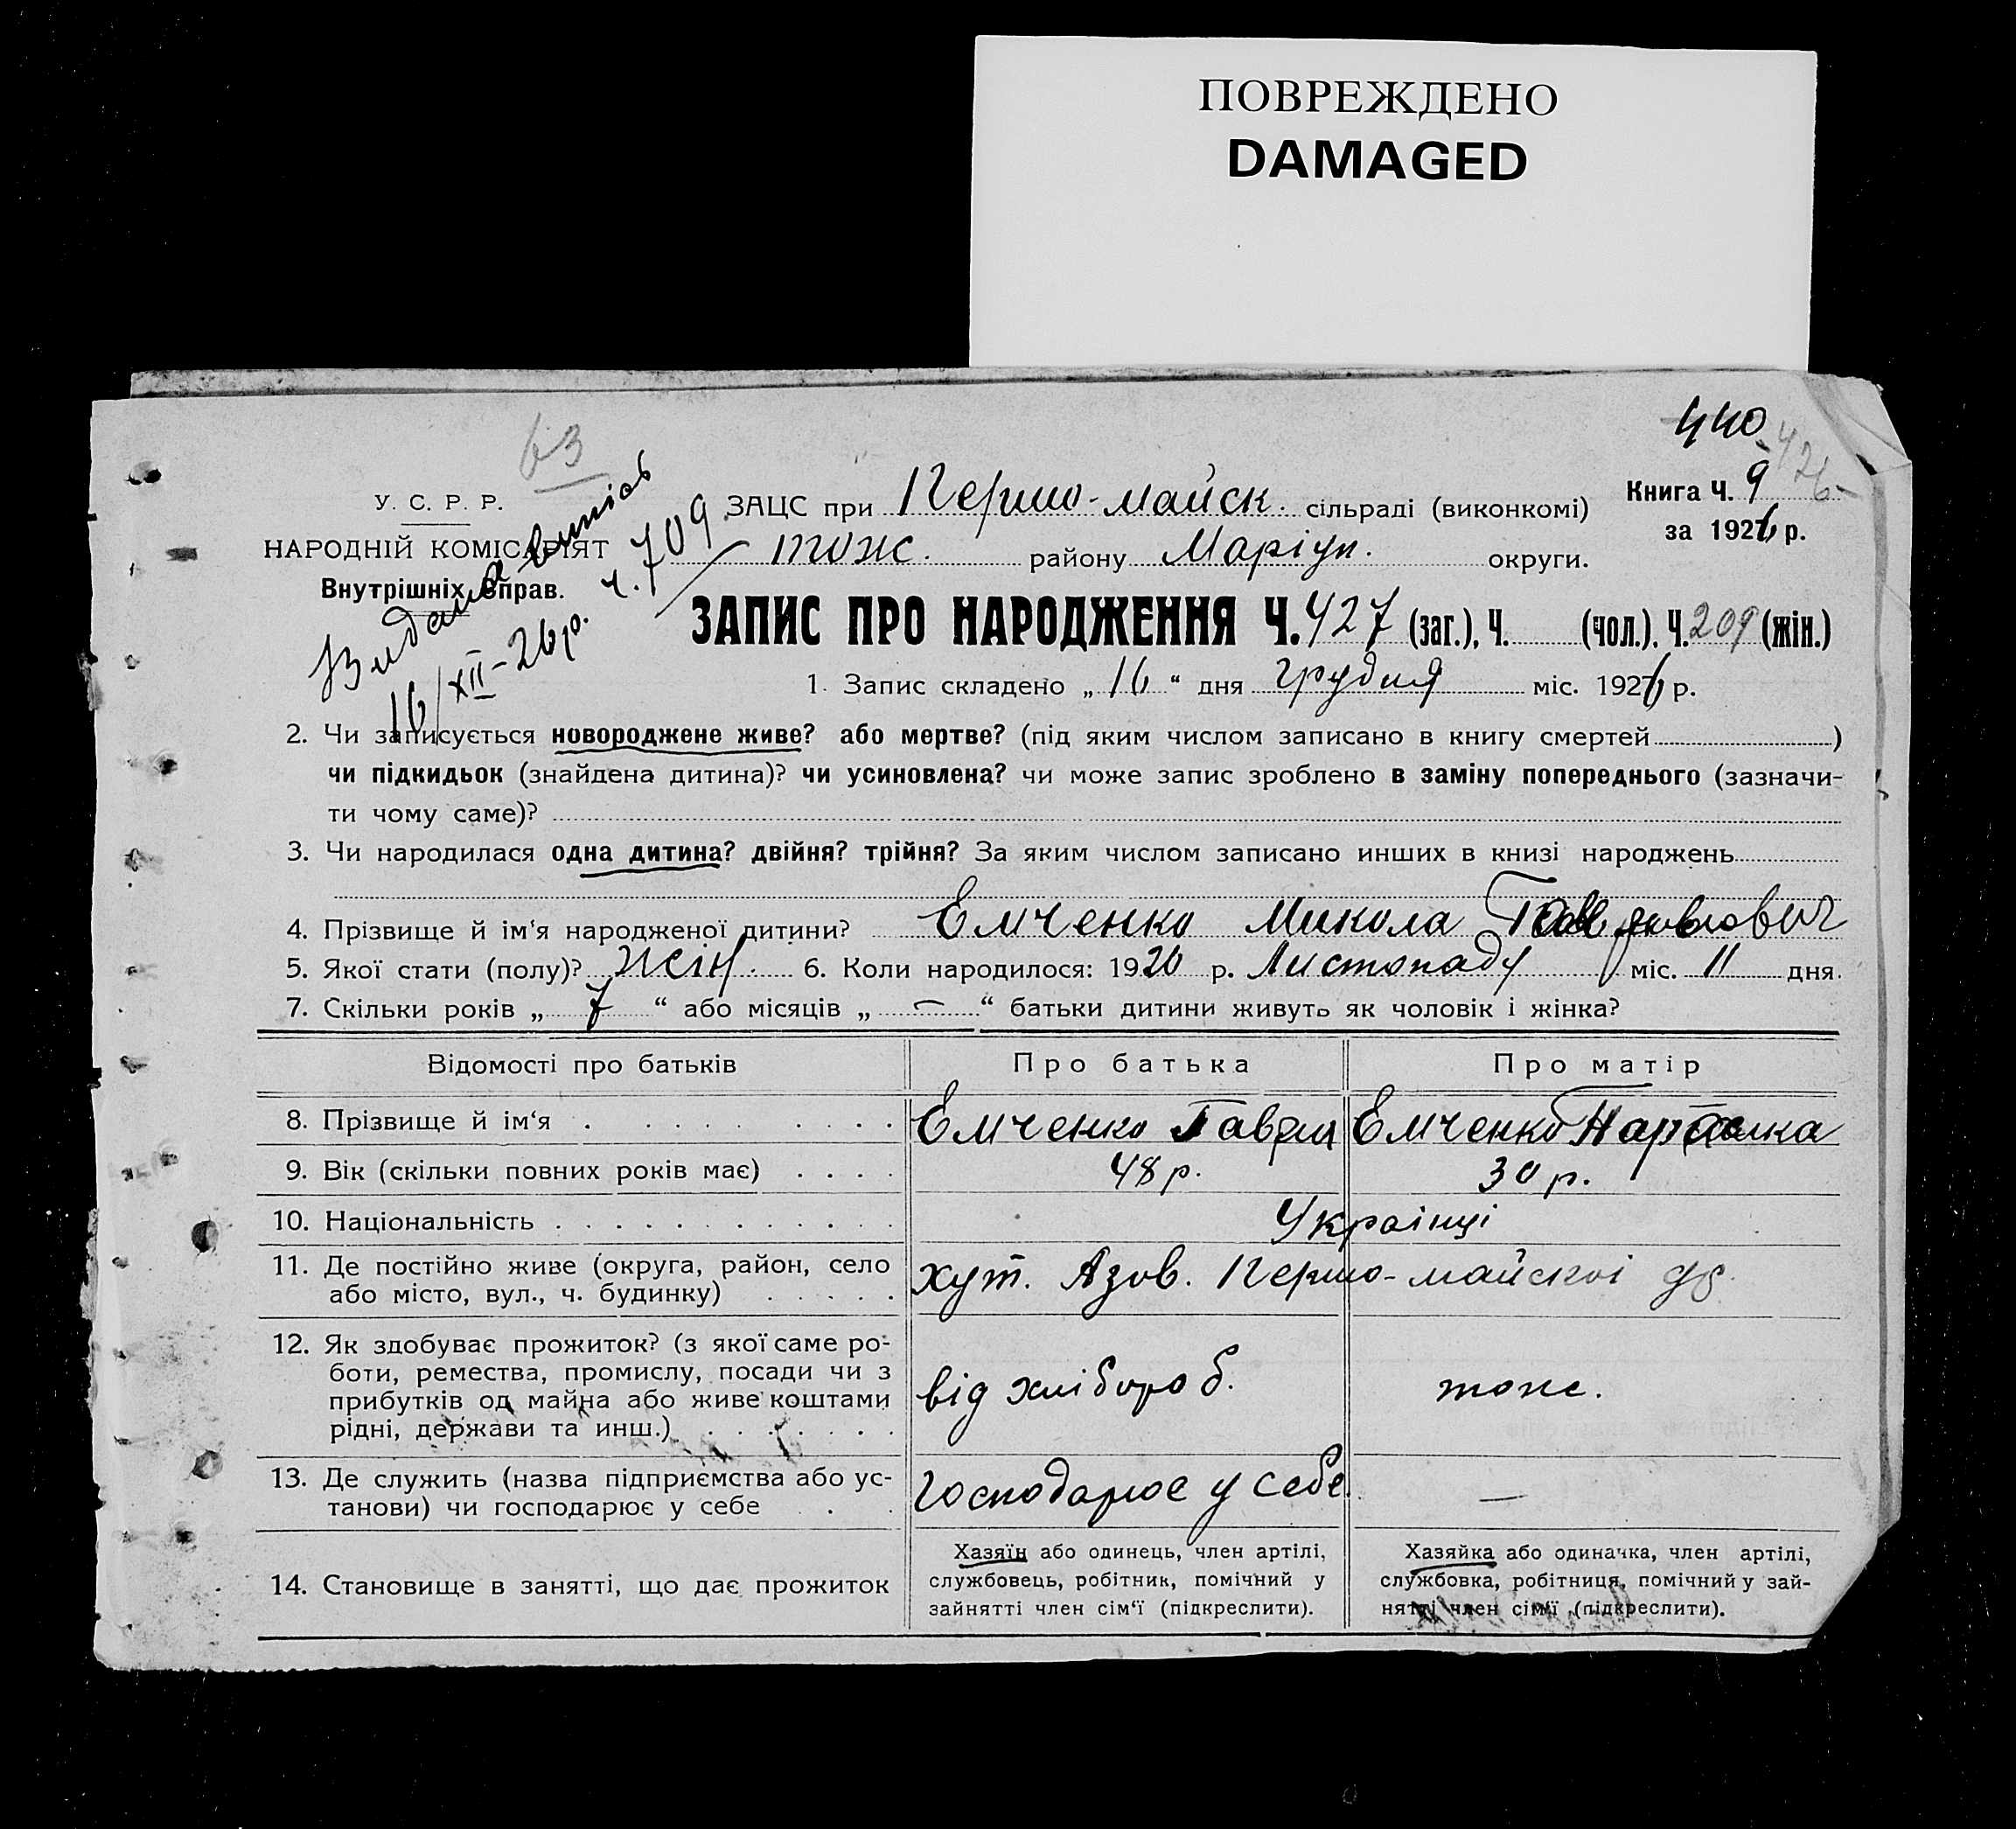 ПОВРЕЖДЕНО
DAMAGED
440
426
63
У. С. Р. Р.
НАРОДНІЙ КОМІСАРІЯТ
Внутрішніх Справ.
Видана випись
16/XII-26 р. ч. 709
ЗАЦС при Першо-майск. сільраді (виконкомі)
Книга Ч. 9
за 1926 р.
тож. району Маріуп. округи.
ЗАПИС ПРО НАРОДЖЕННЯ Ч. 427 (заг.), Ч. (чол.). Ч. 209 (жін.)
1. Запис складено „ 16 “ дня грудня міс. 1926 р.
2. Чи записується новороджене живе? або мертве? (під яким числом записано в книгу смертей )
чи підкидьок (знайдена дитина)? чи усиновлена? чи може запис зроблено в заміну попереднього (зазначи-
ти чому саме)?
3. Чи народилася одна дитина? двійня? трійня? За яким числом записано инших в книзі народжень
4. Прізвище й ім‘я народженої дитини? Емченко Микола Гаврилович
5. Якої стати (полу)? жін. 6. Коли народилося: 1926 р. Листопаду міс. 11 дня.
7. Скільки років „ 7 “ або місяців „ — “ батьки дитини живуть як чоловік і жінка?
Відомості про батьків Про батька Про матір
8. Прізвище й ім‘я Емченко Гаврил Емченко
9. Вік (скільки повних років має) 48 р. 30 р.
10. Національність Украінці
11. Де постійно живе (округа, район, село
або місто, вул., ч. будинку)
хут. Азов. Першо-майскоі
12. Як здобуває прожиток? (з якої саме ро-
боти, ремества, промислу, посади чи з
прибутків од майна або живе коштами
рідні, держави та инш.)
від хлібороб. тож.
13. Де служить (назва підприємства або ус-
танови) чи господарює у себе
господарює у себе —
14. Становище в занятті, що дає прожиток
Хазяїн або одинець, член артілі,
службовець, робітник, помічний у
зайнятті член сім‘ї (підкреслити).
Хазяйка або одиначка, член артілі,
службовка, робітниця, помічний у зай-
нятті член сім‘ї (підкреслити).